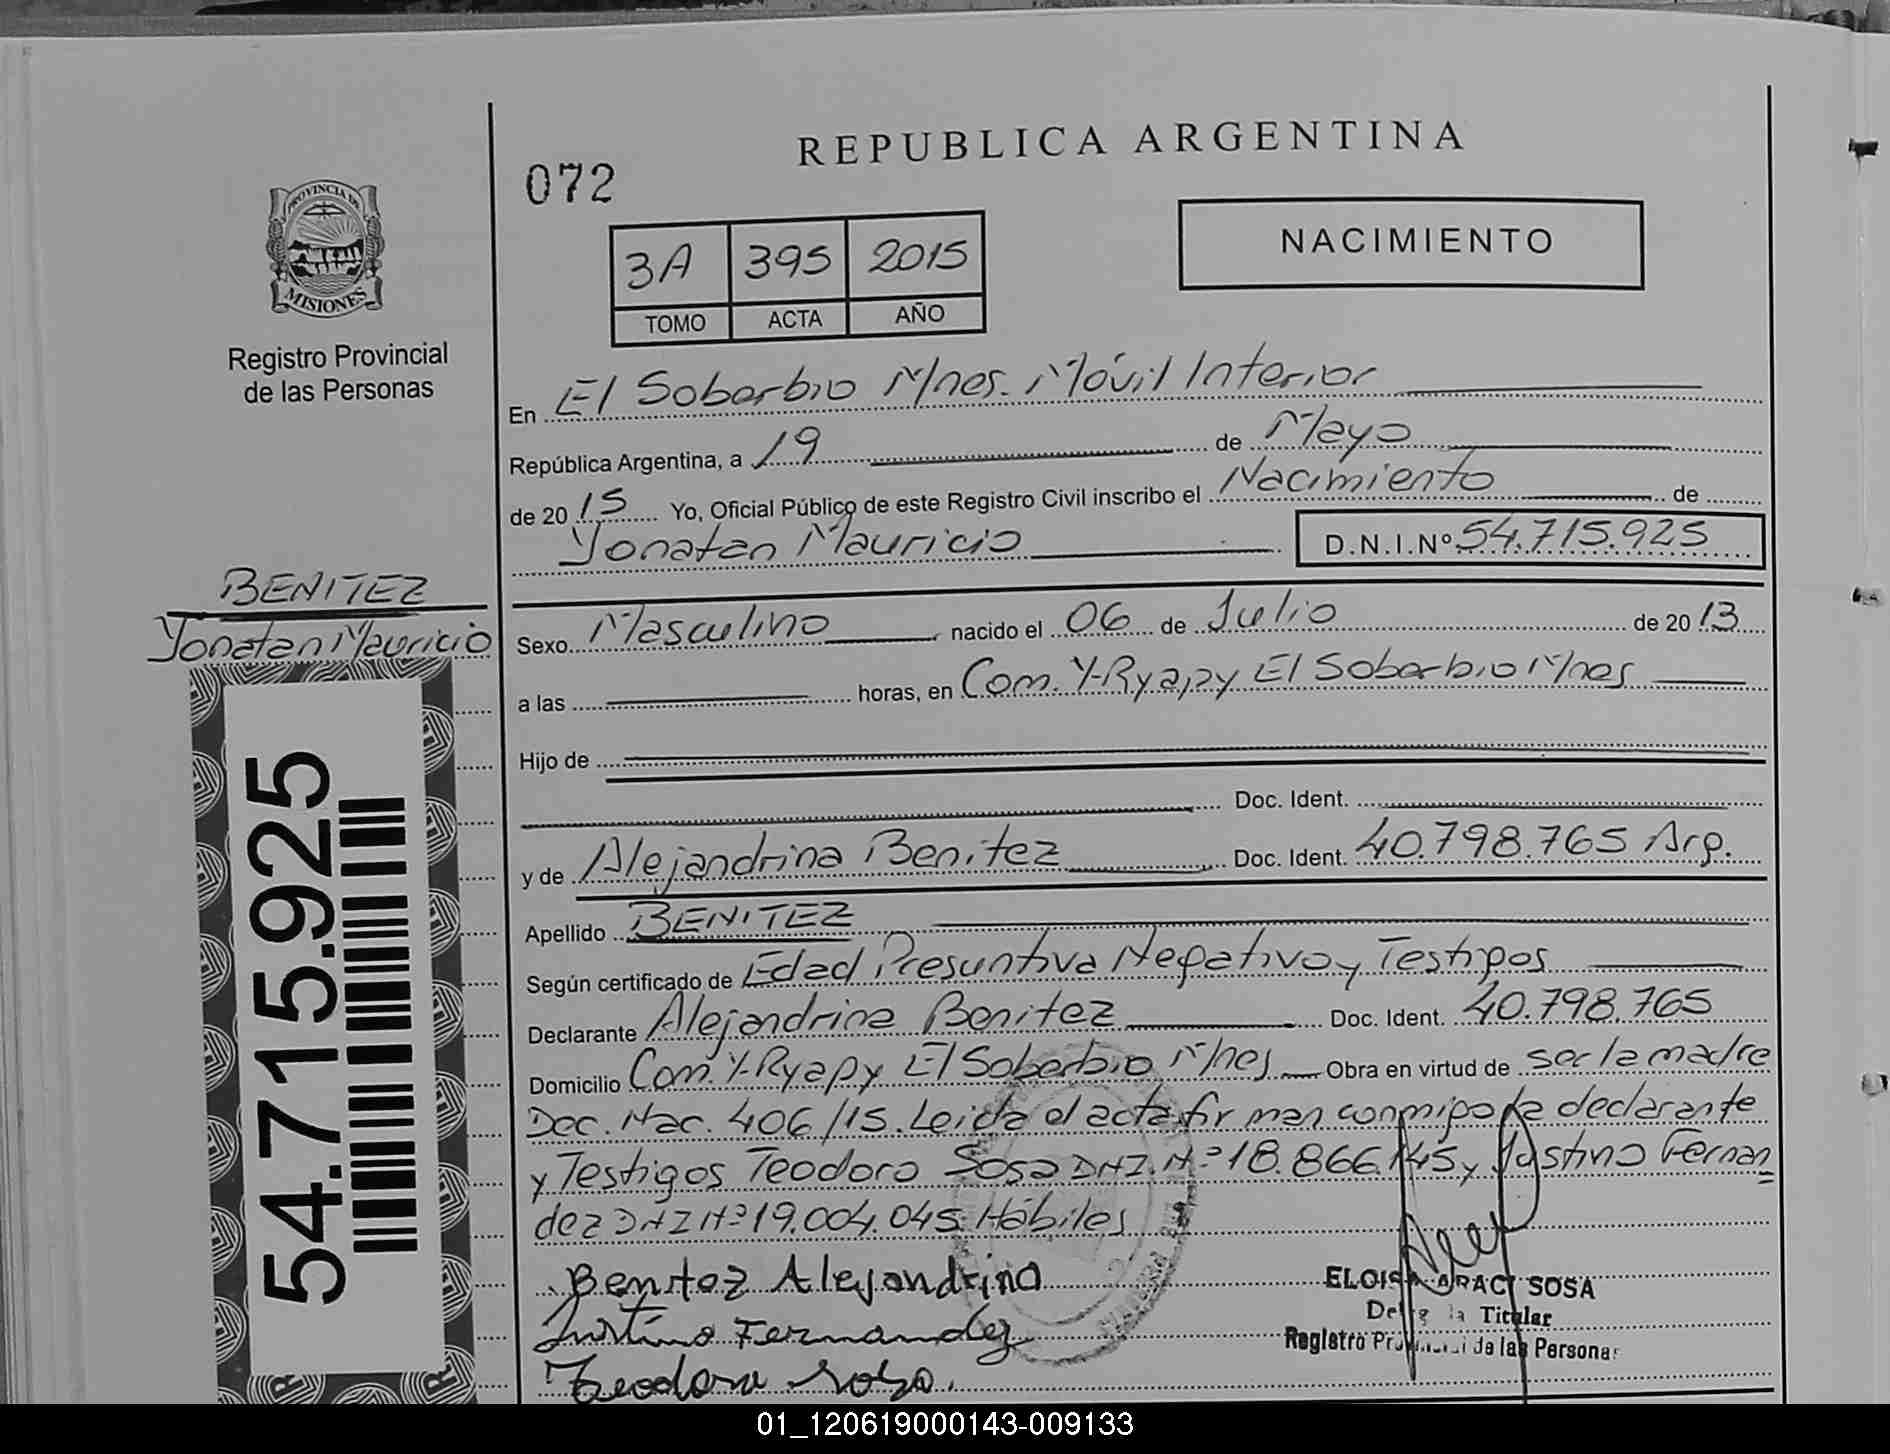 REPUBLICA ARGENTINA
072
NACIMIENTO
3A 395 2015
TOMO ACTA AÑO
PROVINCIA DE
MISIONES
Registro Provincial
de las Personas
En El Soberbio Mnes. Móvil Interior
República Argentina, a 19 de Mayo
de 20 15 Yo, Oficial Público de este Registro Civil inscribo el Nacimiento de
Yonatan Mauricio D.N.I.Nº 54.715.925
BENITEZ
Yonatan Mauricio
54.715.925
Sexo Masculino nacido el 06 de Julio de 20 13
a las horas, en Com. Y-Ryapy El Soberbio Mnes
Hijo de
Doc. Ident.
y de Alejandrina Benitez Doc. Ident. 40.798.765 Arg.
Apellido BENITEZ
Según certificado de Edad Presuntiva Negativo y Testigos
Declarante Alejandrina Benitez Doc. Ident. 40.798.765
Domicilio Com. Y-Ryapy El Soberbio Mnes Obra en virtud de ser la madre
Dec. Nac. 406/15. Leida el acta firman conmigo la declarante
y Testigos Teodoro Sosa DNI. Nº 18.866.145 y Justino Fernan
dez DNI Nº 19.004.045. Hábiles
Benitez Alejandrina
Justino Fernandez
Teodoro Sosa.
ELOISA ARACI SOSA
Titular
Registro Provincial de las Personas
01_120619000143-009133